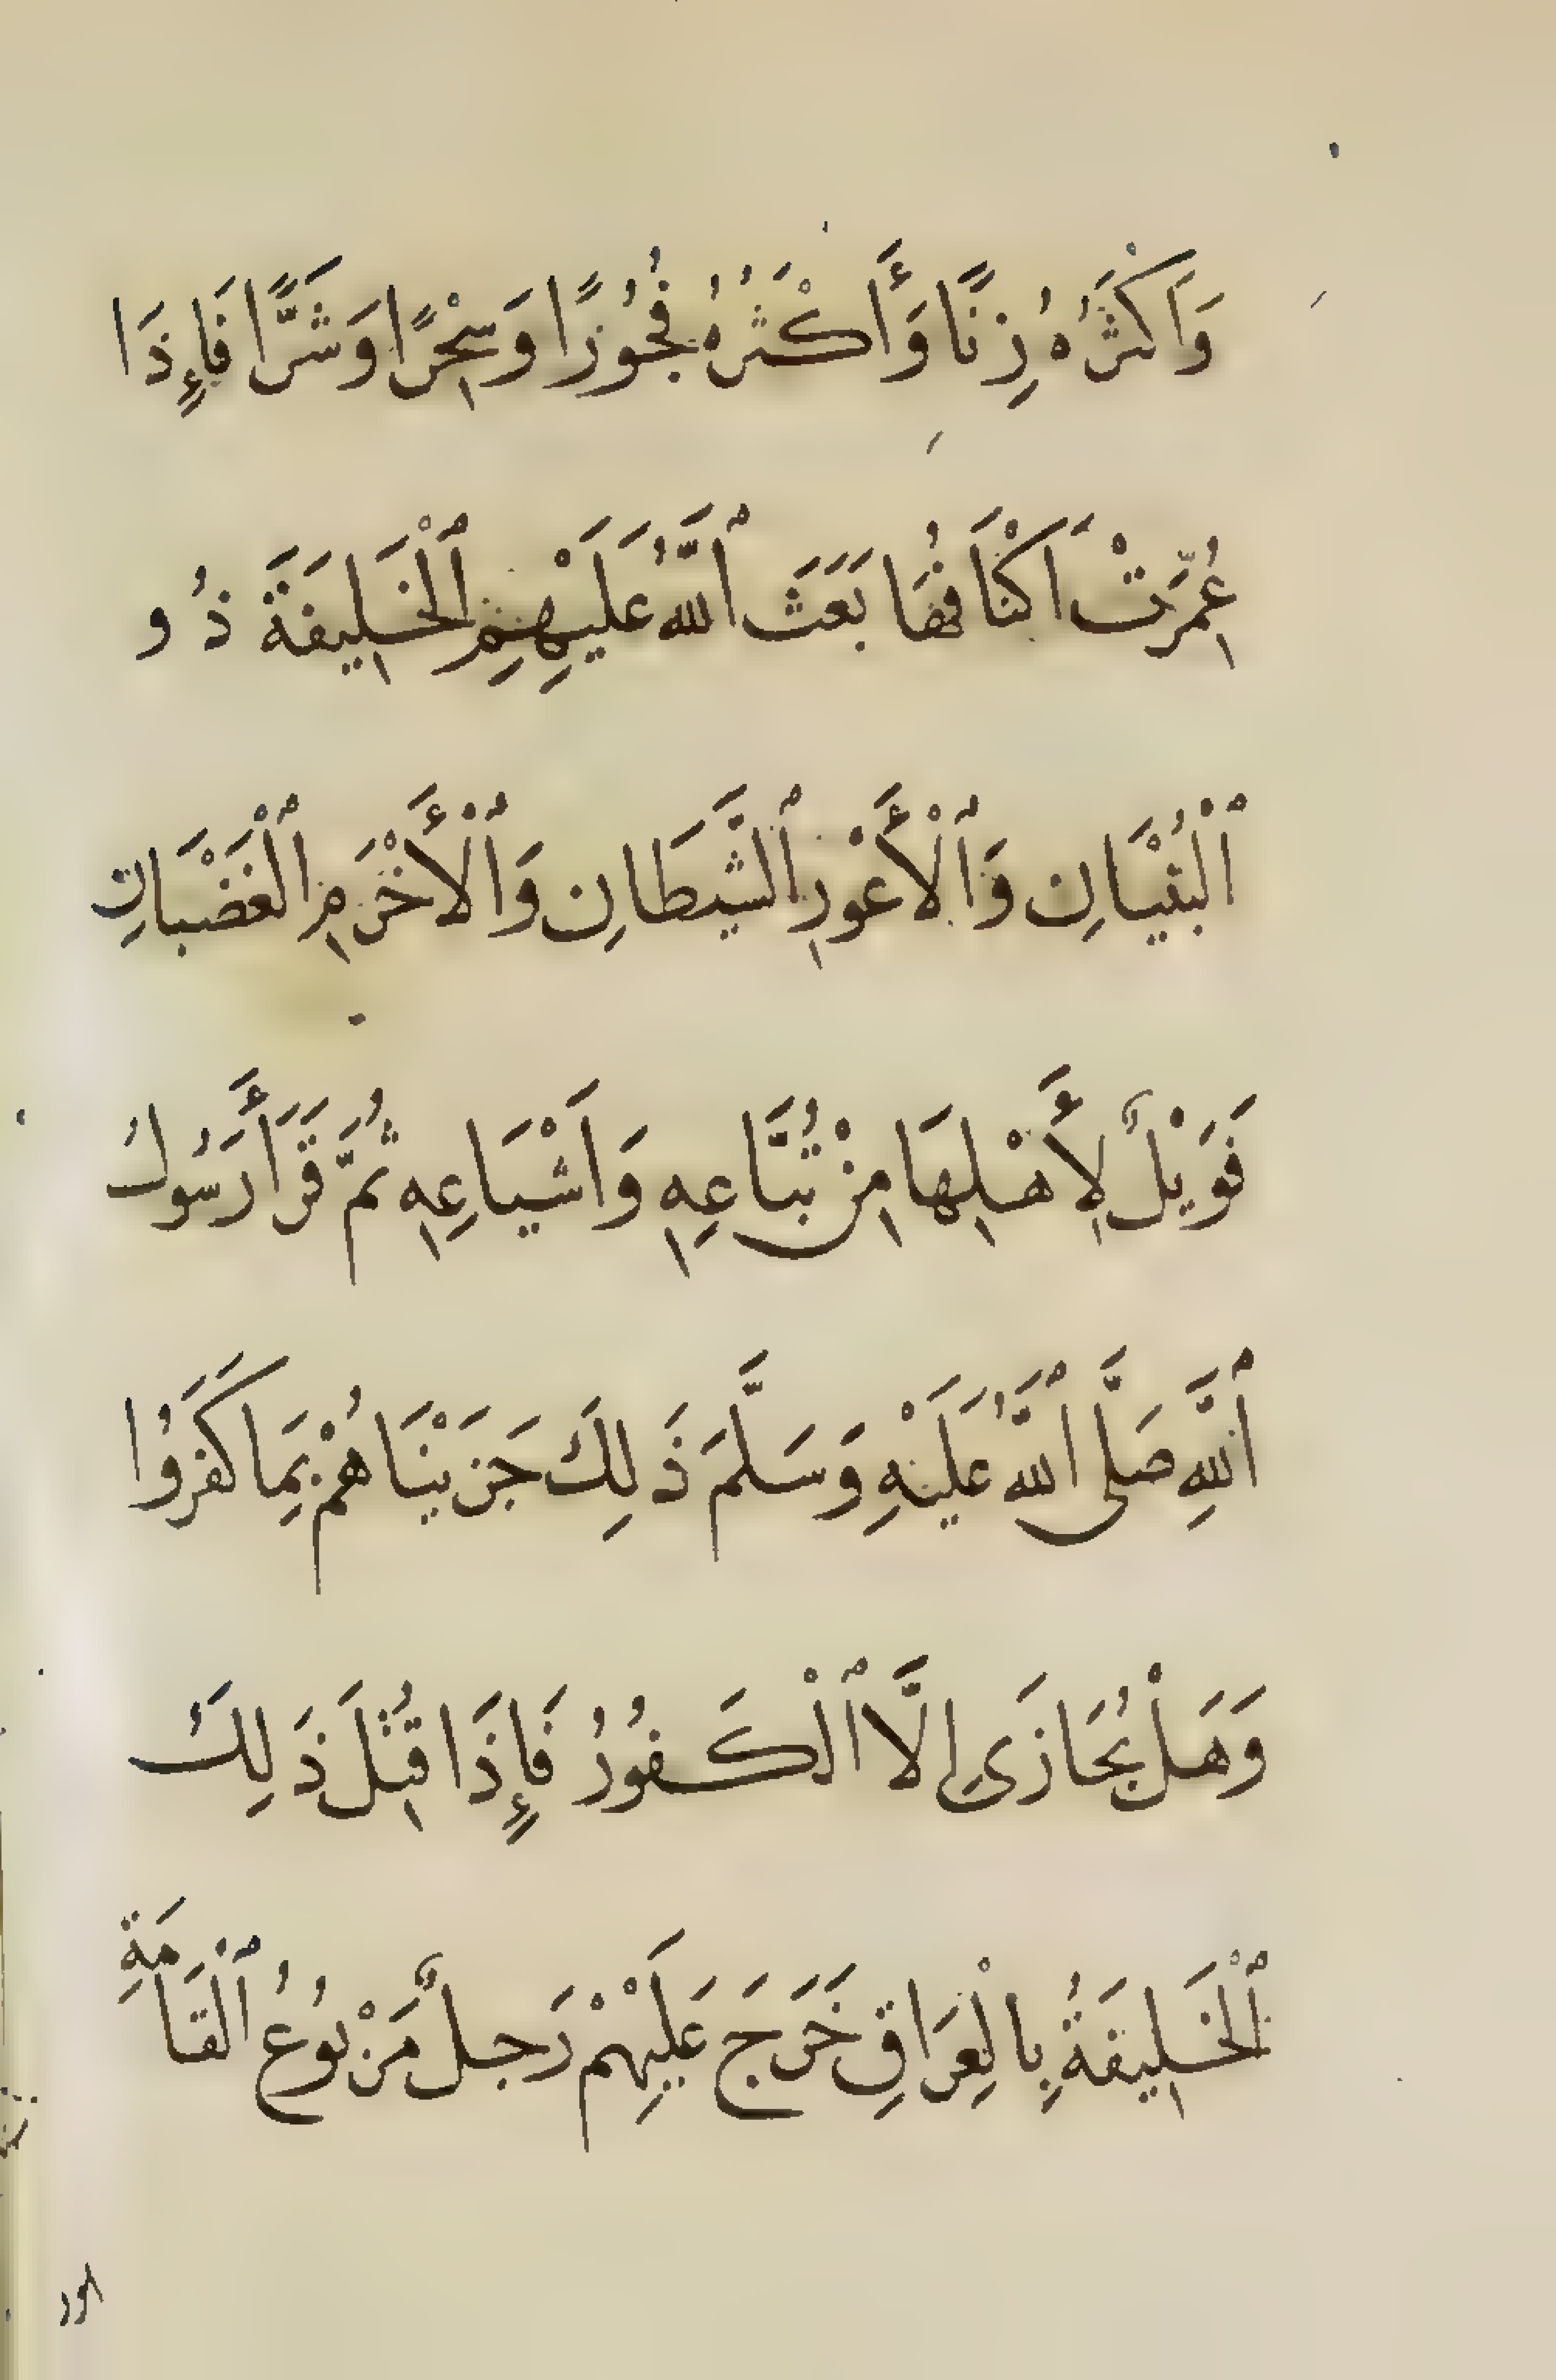 وَاَكْثَرُهُ زِنًا وَأَكْثَرُهُ فُجُوْرًا وَسِحْرًا وَشَرًّا فَإِذَا
عُمِّرَتْ اَكْنَافُهَا بَعَثَ ٱللَّهُ عَلَيْهِمِ ٱلْخَلِيفَةَ ذُو
ٱلْبُنْيَانِ وَٱلْأَعْوَرِ ٱلشَّيطَانِ وَٱلْأَخْرَمِ ٱلْغَضْبَانِ
فَوَيْلٌ لِأَهْلِهَا مِنْ تُبَّاعِهِ وَاَشْيَاعِهِ ثُمَّ قَرَأَ رَسُولُ
ٱللَّهِ صَلَّى ٱللَّهُ عَلَيْهِ وَسَلَّمَ ذَلِكَ جَزَيْنَاهُمْ بِمَا كَفَرُوا
وَهَلْ يُجَازَى إِلَّا ٱلْكَفُورُ فَإِذَا قُتِلَ ذَلِكَ
ٱلْخَلِيفَةُ بِالْعِرَاقِ خَرَجَ عَلَيْهِمْ رَجُلٌ مَرْبُوعُ ٱلْقَامَةِ